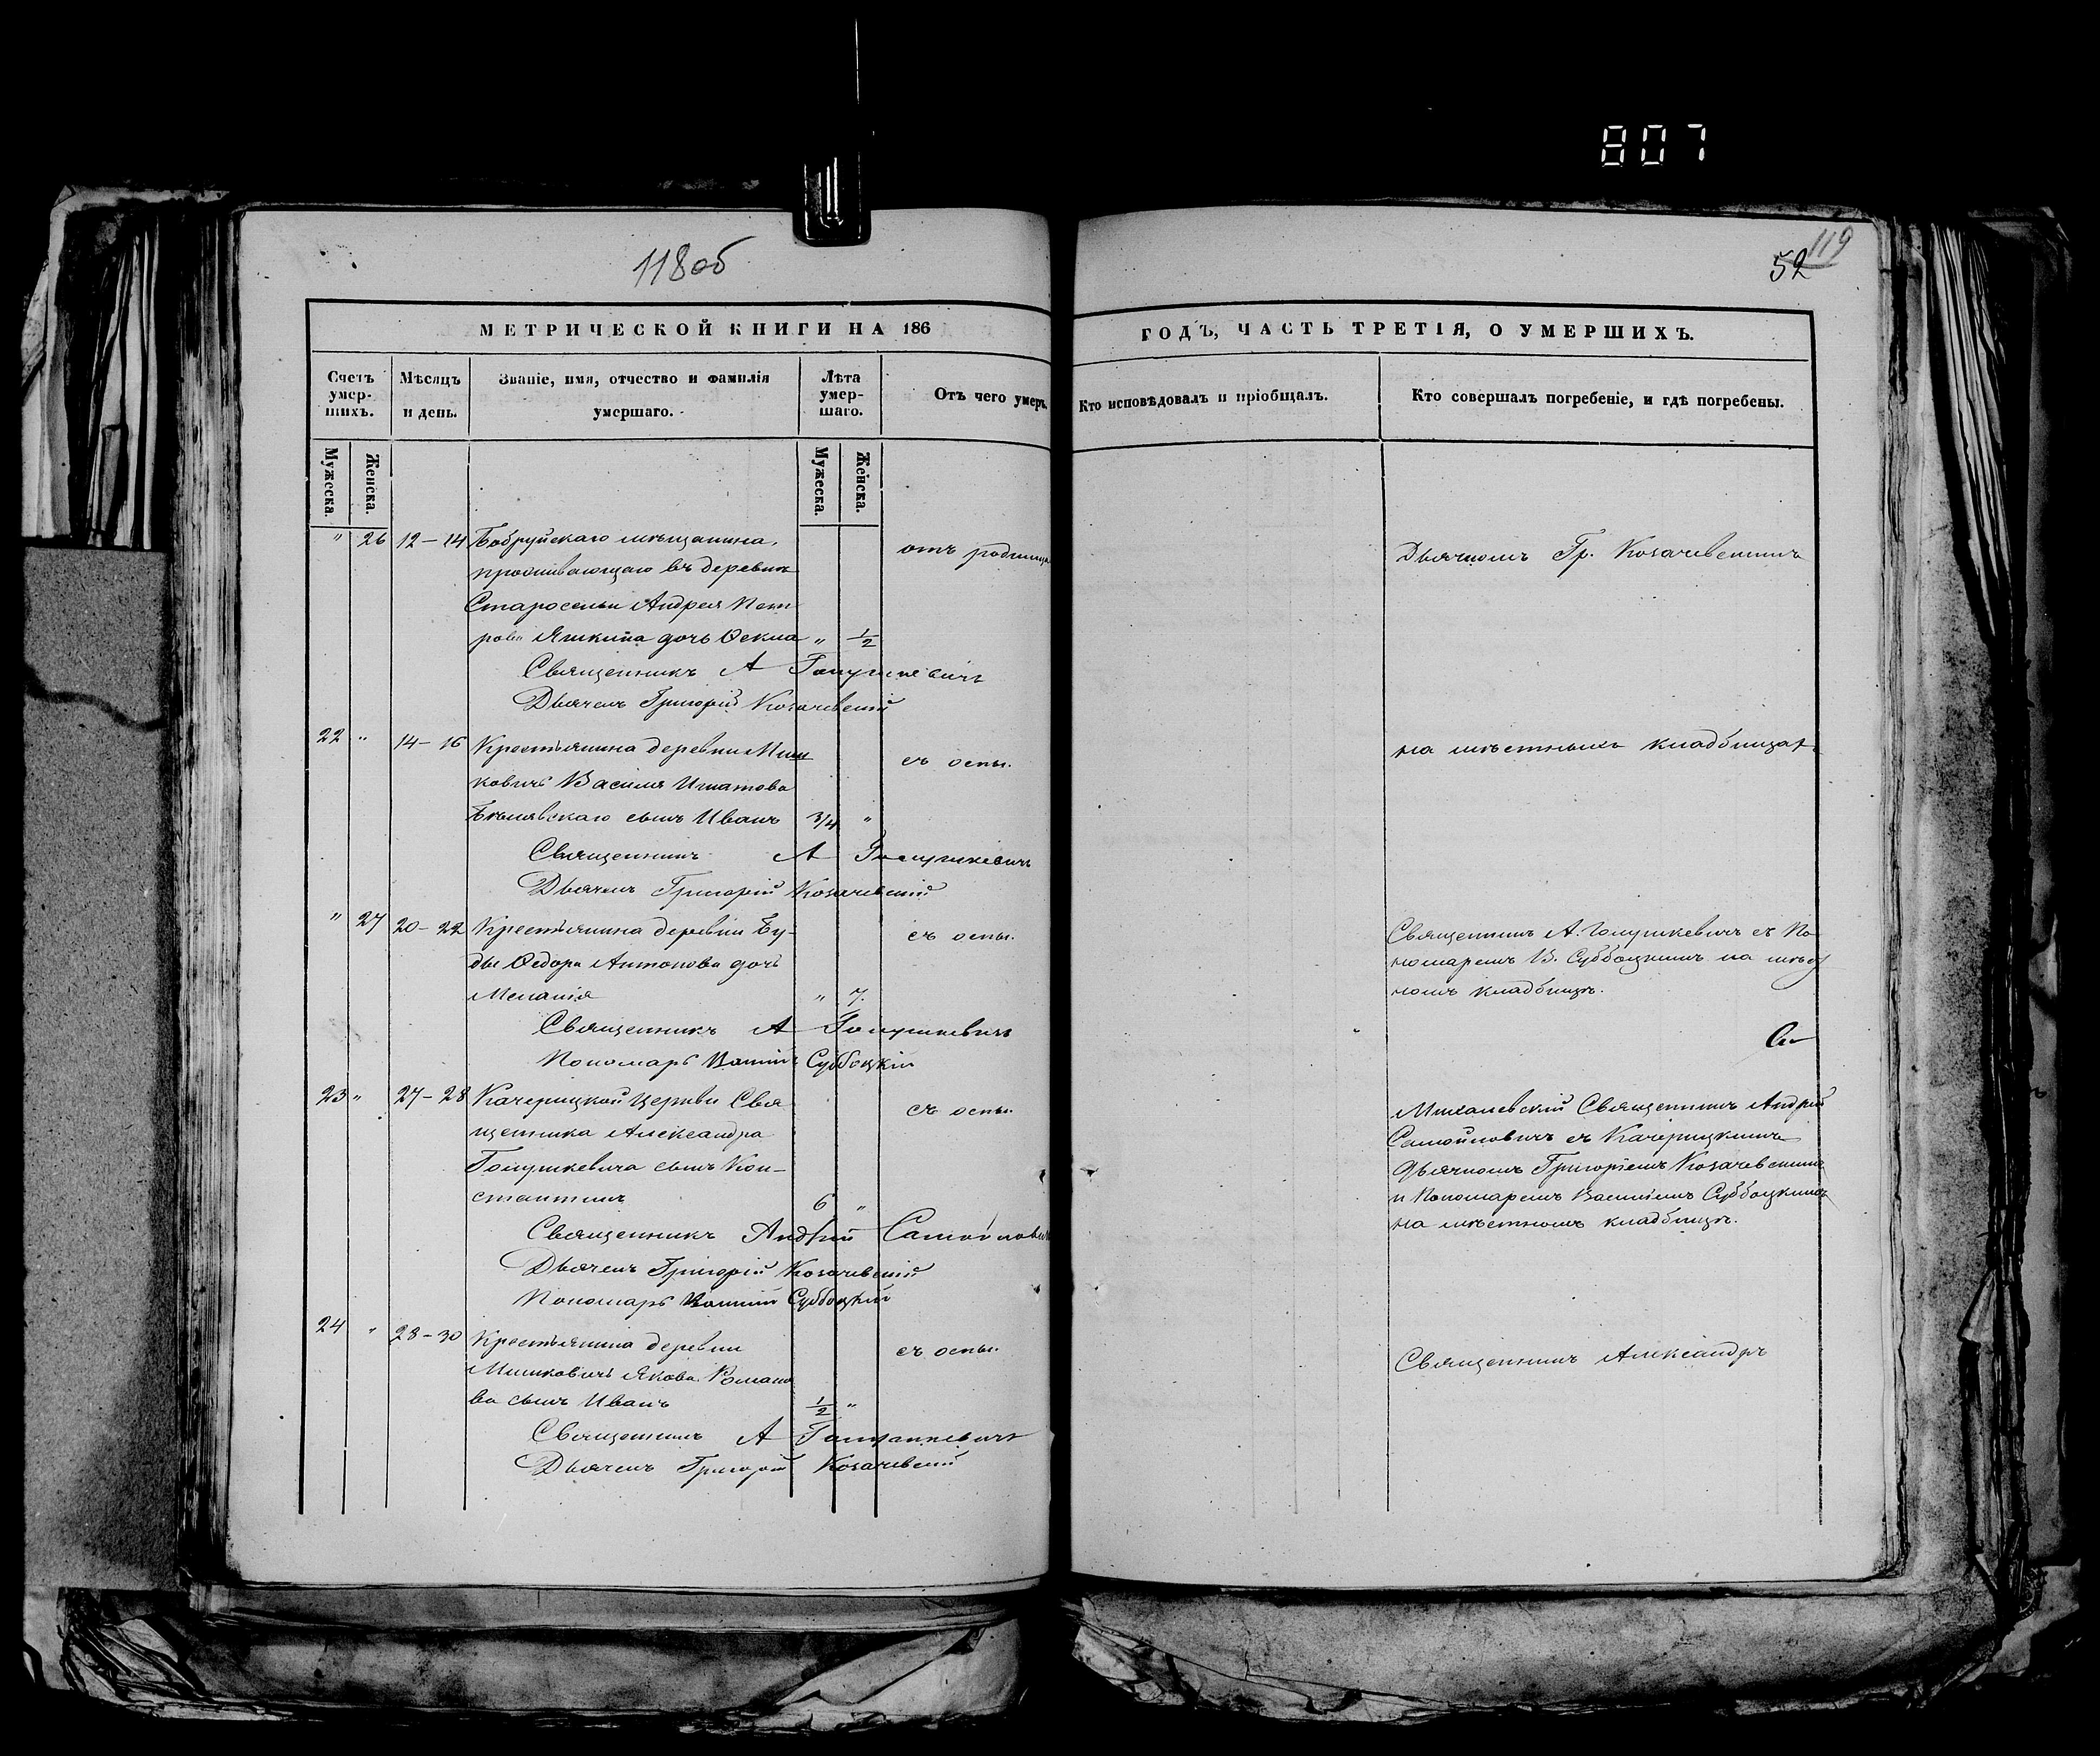 807
118об
52 119
МЕТРИЧЕСКОЙ КНИГИ НА 186
ГОДЪ, ЧАСТЬ ТРЕТІЯ, О УМЕРШИХЪ.
Счетъ умер-шихъ.
Мѣсяцъ и день.
Званіе, имя, отчество и фамилія умершаго.
Лѣта умер-шаго.
Отъ чего умеръ.
Кто исповѣдовалъ и пріобщалъ.
Кто совершалъ погребеніе, и гдѣ погребены.
Мужеска.
Женска.
Мужеска.
Женска.
" 26 12–14 Бобруйскаго мѣщанина,
проживающаго въ деревни
Старосельи Андрея Пет
рова Яшкина дочь Ѳекла " 1/2
отъ родимца
Дьячкомъ Гр. Козачевскимъ
Священникъ А Голушкевичъ
Дьячекъ Григорій Козачевскій
22 " 14–16 Крестьянина деревни Миш
ковичъ Василія Игнатова
Бѣлявскаго сынъ Иванъ 3/4 "
съ оспы.
на мѣстныхъ кладбищах
Священникъ А Голушкевичъ
Дьячекъ Григорій Козачевскій
" 27 20–22 Крестьянина деревни Бу-
ды Ѳедора Антонова дочь
Меланія " 7.
съ оспы.
Священникъ А. Голушкевичъ съ По
номаремъ В. Субботскимъ на мѣст
номъ кладбищѣ.
Священникъ А Голушкевичъ
Пономарь Василій Субботскій
23 " 27–28 Качерицкой Церкви Свя
щенника Александра
Голушкевича сынъ Кон-
стантинъ 6 "
съ оспы.
Михалевскій Священникъ Андрей
Самойловичъ съ Качерицкимъ
Дьячкомъ Григоріемъ Козачевскимъ
и Пономаремъ Василіемъ Субботскимъ
на мѣстномъ кладбищѣ.
Священникъ Андрей Самойловичъ
Дьячекъ Григорій Козачевскій
Пономарь Василій Субботскій
24 " 28–30 Крестьянина деревни
Мишковичъ Якова Романо
ва сынъ Иванъ 1/2 "
съ оспы.
Священникъ Александръ
Священникъ А Голушкевичъ
Дьячекъ Григорій Козачевскій